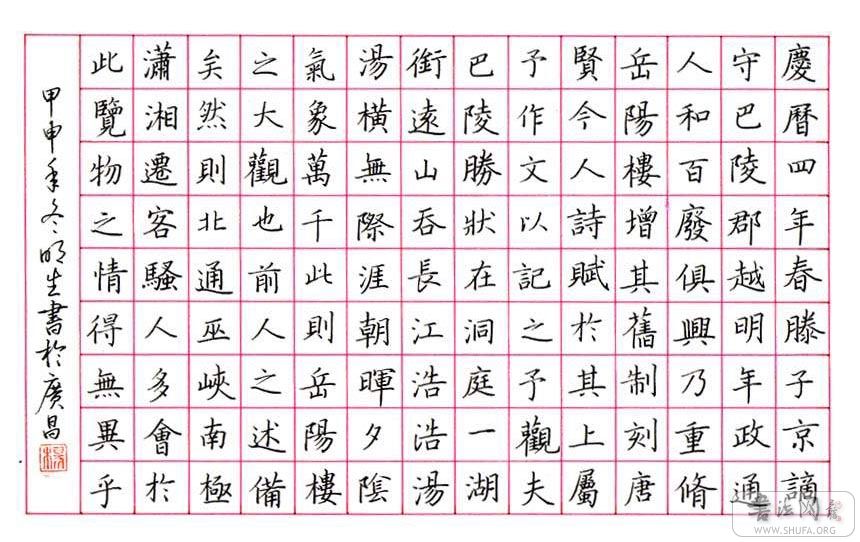 慶曆四年春滕子京謫
守巴陵郡越明年政通
人和百廢俱興乃重脩
岳陽樓增其舊制刻唐
賢今人詩賦於其上屬
予作文以記之予觀夫
巴陵勝狀在洞庭一湖
銜遠山吞長江浩浩湯
湯橫無際涯朝暉夕陰
氣象萬千此則岳陽樓
之大觀也前人之述備
矣然則北通巫峽南極
瀟湘遷客騷人多會於
此覽物之情得無異乎
甲申年冬明生書於廣昌
書法网
WWW.SHUFA.ORG